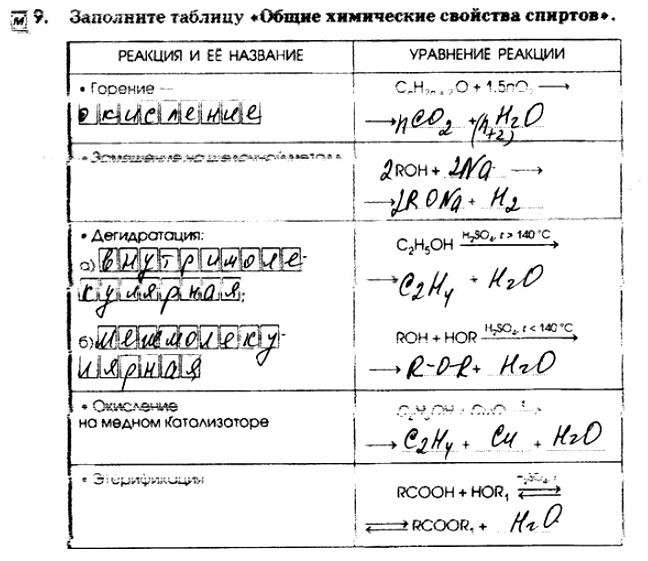 м 9. Заполните таблицу «Общие химические свойства спиртов».
РЕАКЦИЯ И ЕЁ НАЗВАНИЕ
УРАВНЕНИЕ РЕАКЦИИ
• Горение —
окисление
CₙH₂ₙ₊₂O + 1.5nO₂ ⟶
⟶ nCO₂ + (n+2) H₂O
• Замещение на щелочной металл
2ROH + 2Na ⟶
⟶ 2RONa + H₂
• Дегидратация:
а) внутримоле-
кулярная;
C₂H₅OH H₂SO₄, t > 140 °C ⟶
⟶ C₂H₄ + H₂O
б) межмолеку-
лярная
ROH + HOR H₂SO₄, t < 140 °C ⟶
⟶ R-O-R + H₂O
• Окисление
на медном катализаторе
C₂H₅OH + CuO t ⟶
⟶ C₂H₄ + Cu + H₂O
• Этерификация
RCOOH + HOR₁ H₂SO₄ ⇄
⇄ RCOOR₁ + H₂O